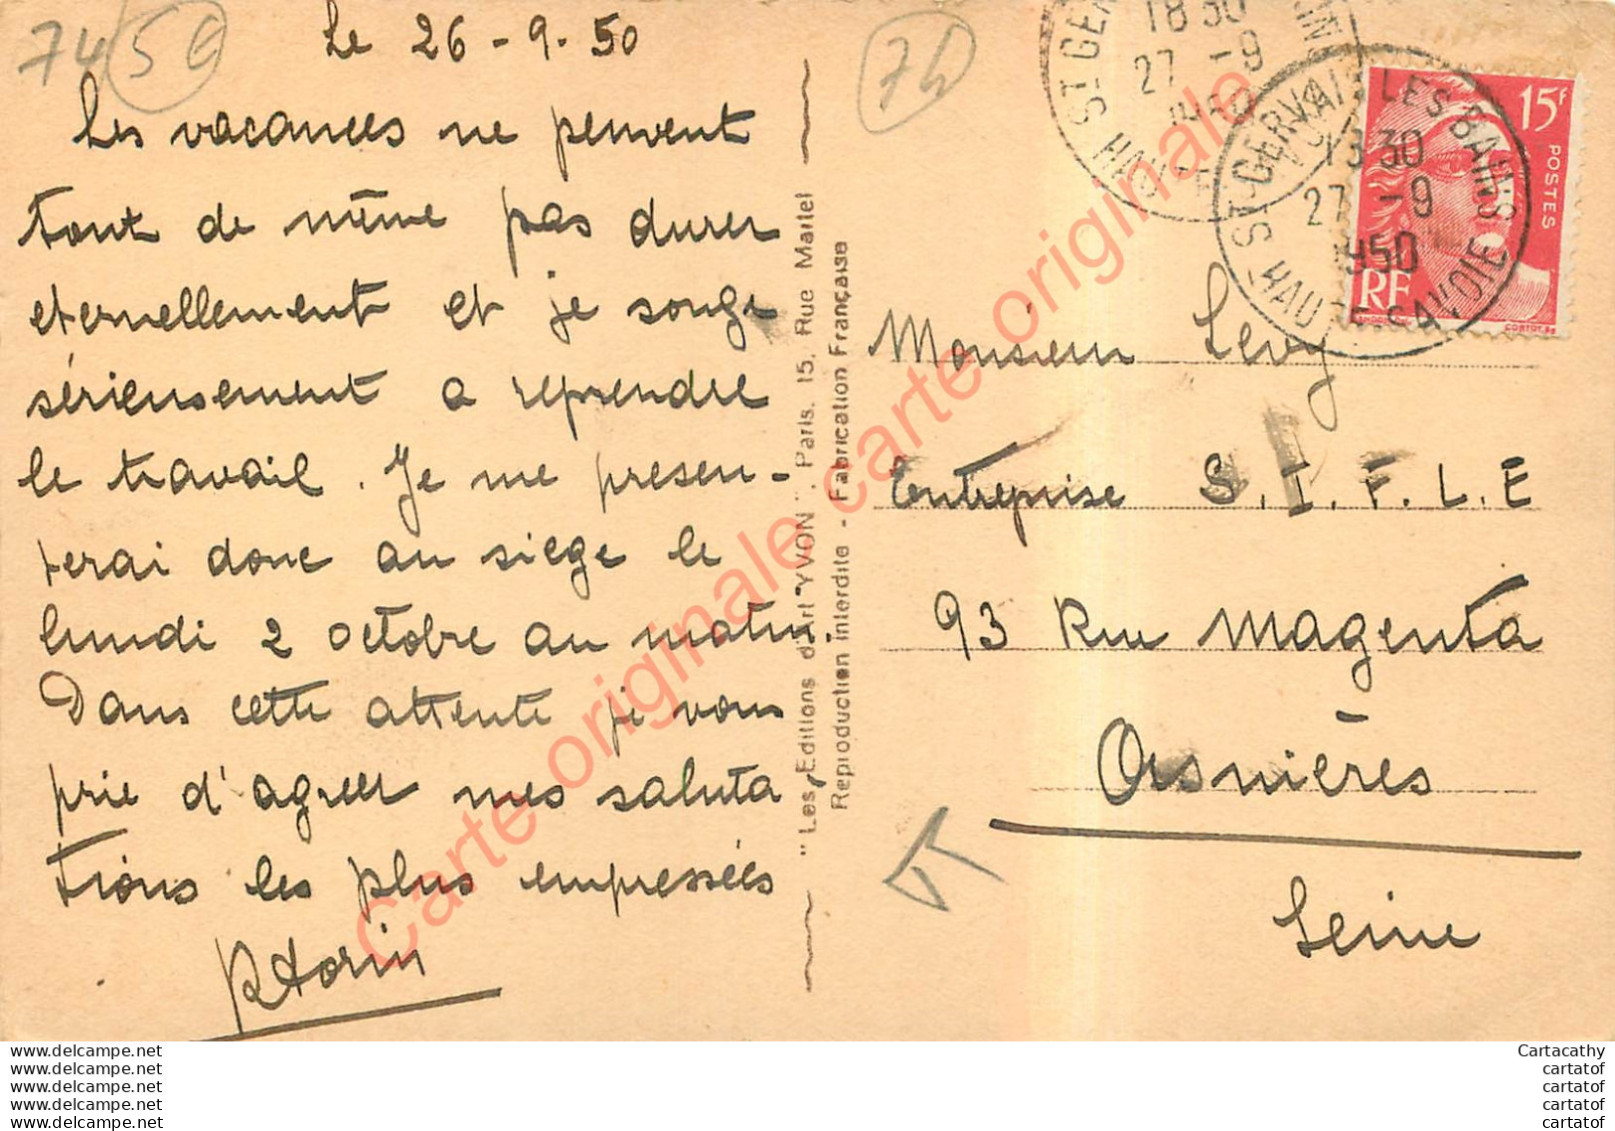 74 56
Le 26-9-50
Les vacances ne peuvent
tout de même pas durer
eternellement et je songe
sérieusement a reprendre
le travail. Je me presen-
terai donc au siège le
lundi 2 octobre au matin.
Dans cette attente je vous
prie d'agreer mes saluta
tions les plus empressées
"Les Editions d'Art "YVON". Paris. 15, Rue Martel
Reproduction Interdite - Fabrication Française
74
ST GERVAIS LES BAINS
HAUTE-SAVOIE
18 30
27 -9
1950
15F
POSTES
RF
Monsieur Levy
Entreprise S.I.F.L.E
93 Rue Magenta
Asnières
Seine
Carte originale carte originale
www.delcampe.net
www.delcampe.net
www.delcampe.net
www.delcampe.net
www.delcampe.net
Cartacathy
cartatof
cartatof
cartatof
cartatof